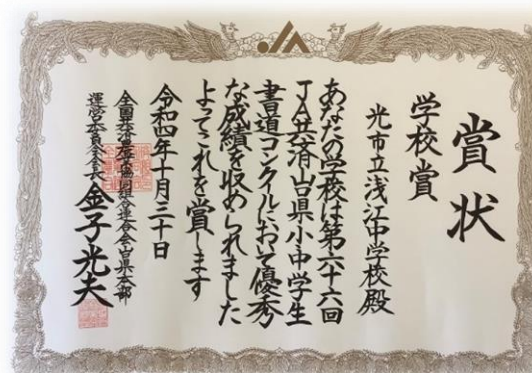 賞状
学校賞
光市立浅江中学校殿
あなたの学校は第六十六回
JA共済山口県小・中学生
書道コンクールにおいて優秀
な成績を収められました
よってこれを賞します
令和四年十月三十日
全国共済農業協同組合連合会山口県本部
運営委員会会長 金子光夫